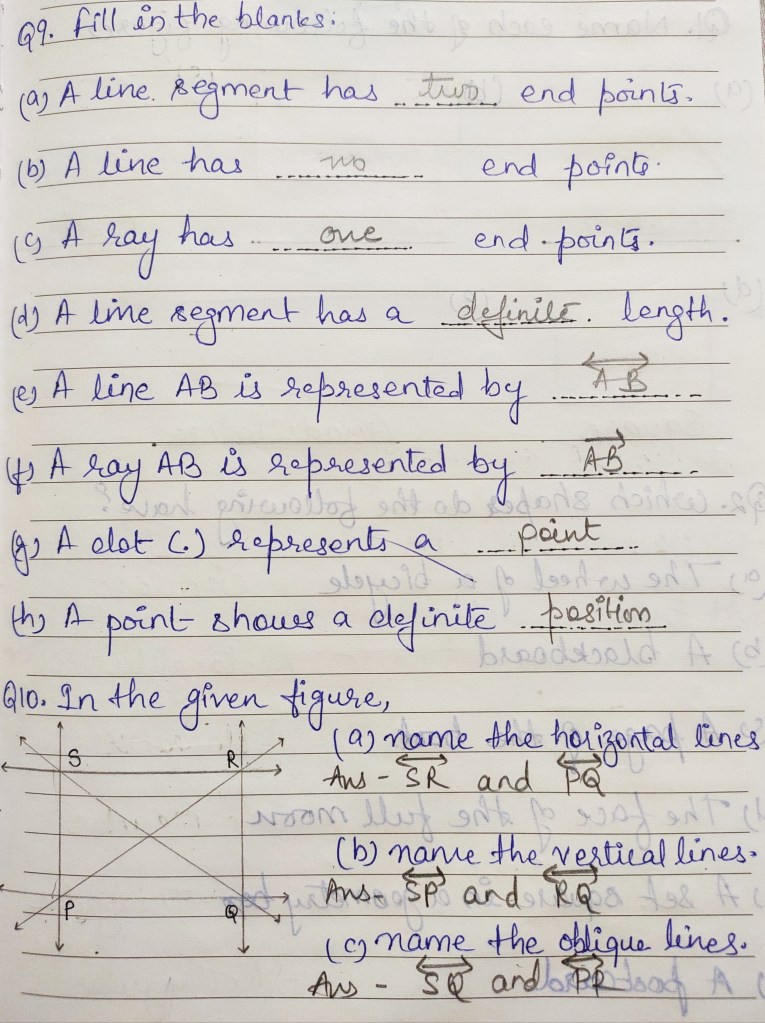 Q9. Fill in the blanks:
(a) A line segment has two end points.
(b) A line has no end points.
(c) A ray has one end points.
(d) A line segment has a definite length.
(e) A line AB is represented by A B
(f) A ray AB is represented by AB
(g) A dot (.) represents a point
(h) A point shows a definite position
Q10. In the given figure,
(a) name the horizontal lines
S R
Ans - SR and PQ
(b) name the vertical lines.
Ans - SP and RQ
P Q
(c) name the oblique lines.
Ans - SQ and PR